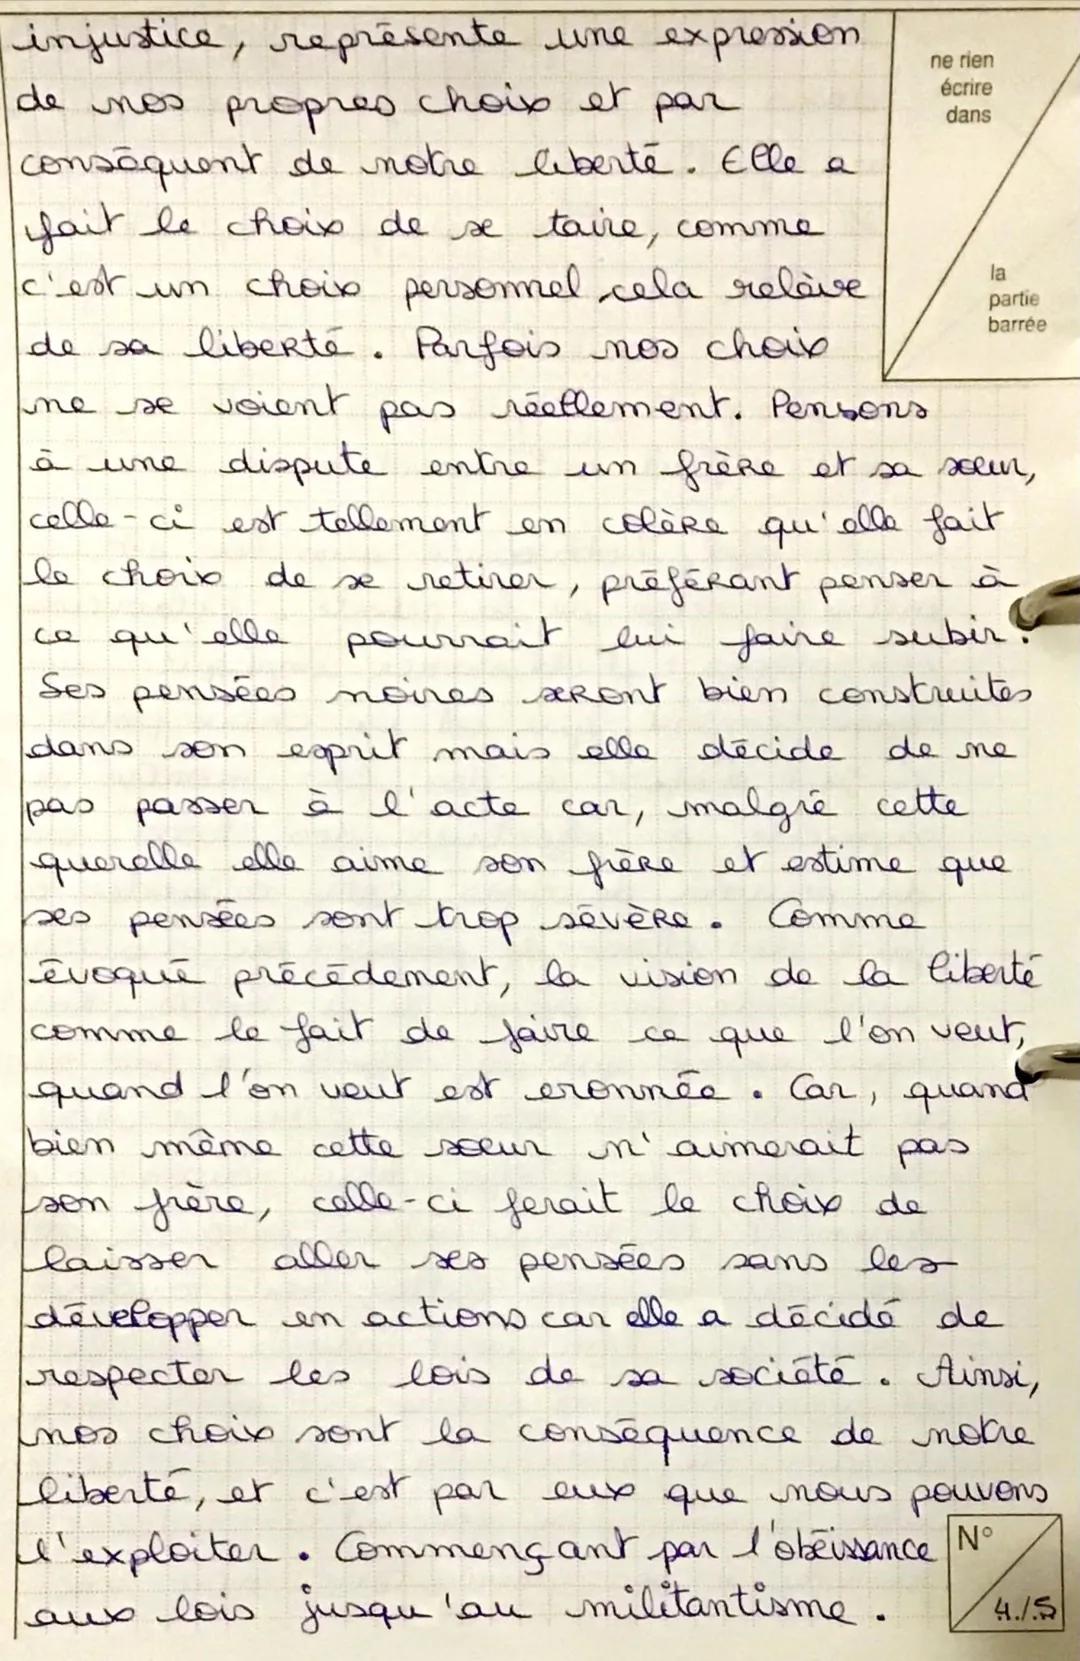 injustice, représente une expression
ne rien
écrire
dans
de nos propres choix et par
conséquent de notre liberté. Elle a
fait le choix de se taire, comme
c'est un choix personnel, cela relève
la
partie
barrée
de sa liberté. Parfois nos choix
ne se voient pas réellement. Pensons
à une dispute entre un frère et sa sœur,
celle-ci est tellement en colère qu'elle fait
le choix de se retirer, préférant penser à
ce qu'elle pourrait lui faire subir.
Ses pensées noires seront bien construites
dans son esprit mais elle décide de ne
pas passer à l'acte car, malgré cette
querelle elle aime son frère et estime que
ses pensées sont trop sévère. Comme
évoqué précédement, la vision de la liberté
comme le fait de faire ce que l'on veut,
quand l'on veut est eronnée. Car, quand
bien même cette sœur n'aimerait pas
son frère, celle-ci ferait le choix de
laisser aller ses pensées sans les
développer en actions car elle a décidé de
respecter les lois de sa société. Ainsi,
nos choix sont la conséquence de notre
liberté, et c'est par eux que nous pouvons
l'exploiter. Commençant par l'obéissance
aux lois jusqu'au militantisme.
N°
4./5